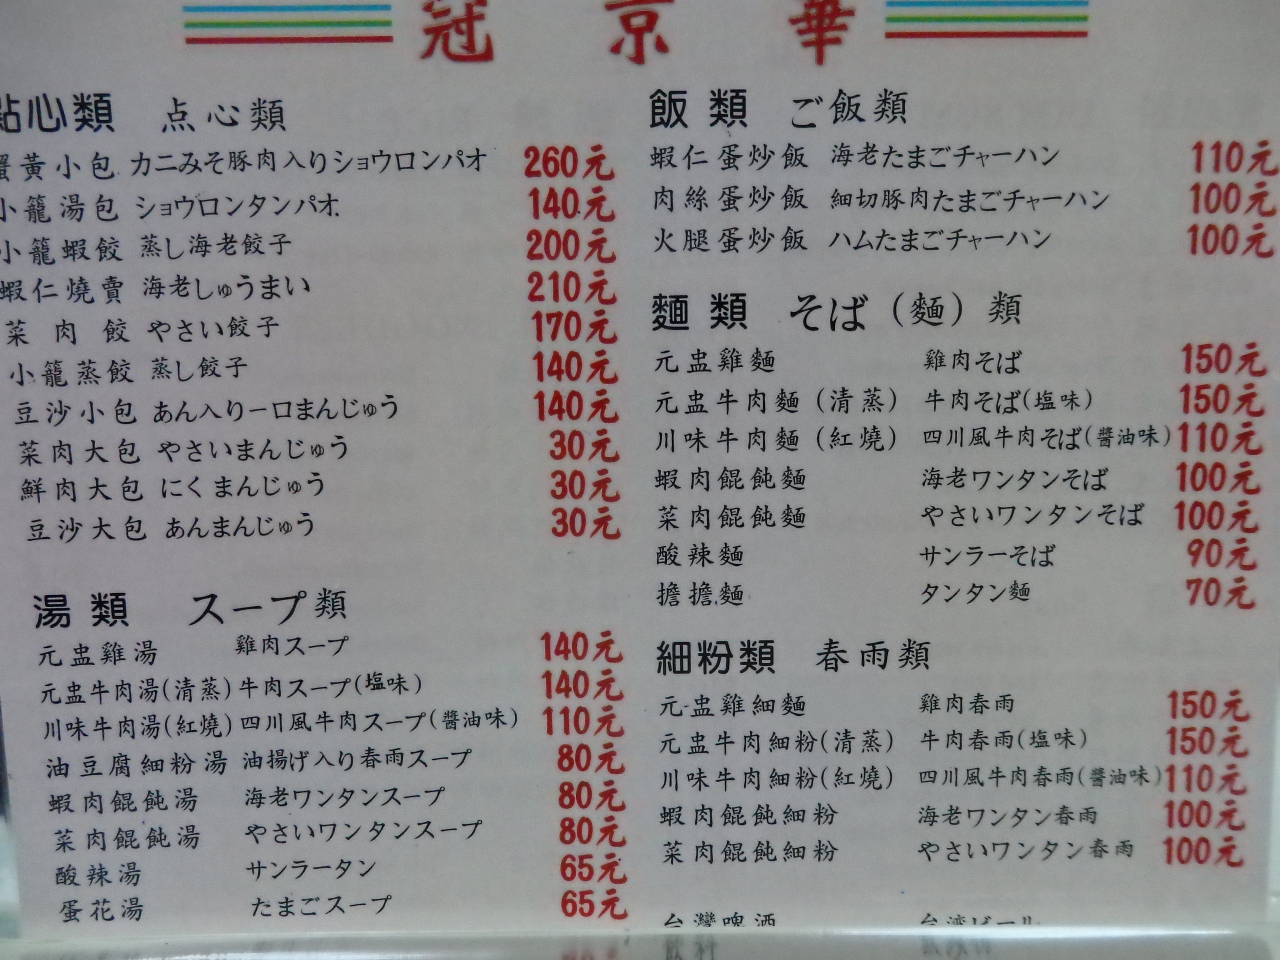 冠京華
點心類 点心類
蟹黃小包 カニみそ豚肉入りショウロンパオ 260元
小籠湯包 ショウロンタンパオ 140元
小籠蝦餃 蒸し海老餃子 200元
蝦仁燒賣 海老しゅうまい 210元
菜肉餃 やさい餃子 170元
小籠蒸餃 蒸し餃子 140元
豆沙小包 あん入り一口まんじゅう 140元
菜肉大包 やさいまんじゅう 30元
鮮肉大包 にくまんじゅう 30元
豆沙大包 あんまんじゅう 30元
湯類 スープ類
元盅雞湯 雞肉スープ 140元
元盅牛肉湯(清蒸) 牛肉スープ(塩味) 140元
川味牛肉湯(紅燒) 四川風牛肉スープ(醬油味) 110元
油豆腐細粉湯 油揚げ入り春雨スープ 80元
蝦肉餛飩湯 海老ワンタンスープ 80元
菜肉餛飩湯 やさいワンタンスープ 80元
酸辣湯 サンラータン 65元
蛋花湯 たまごスープ 65元
飯類 ご飯類
蝦仁蛋炒飯 海老たまごチャーハン 110元
肉絲蛋炒飯 細切豚肉たまごチャーハン 100元
火腿蛋炒飯 ハムたまごチャーハン 100元
麵類 そば(麵)類
元盅雞麵 雞肉そば 150元
元盅牛肉麵(清蒸) 牛肉そば(塩味) 150元
川味牛肉麵(紅燒) 四川風牛肉そば(醬油味) 110元
蝦肉餛飩麵 海老ワンタンそば 100元
菜肉餛飩麵 やさいワンタンそば 100元
酸辣麵 サンラーそば 90元
擔擔麵 タンタン麵 70元
細粉類 春雨類
元盅雞細麵 雞肉春雨 150元
元盅牛肉細粉(清蒸) 牛肉春雨(塩味) 150元
川味牛肉細粉(紅燒) 四川風牛肉春雨(醬油味) 110元
蝦肉餛飩細粉 海老ワンタン春雨 100元
菜肉餛飩細粉 やさいワンタン春雨 100元
台灣啤酒 台湾ビール